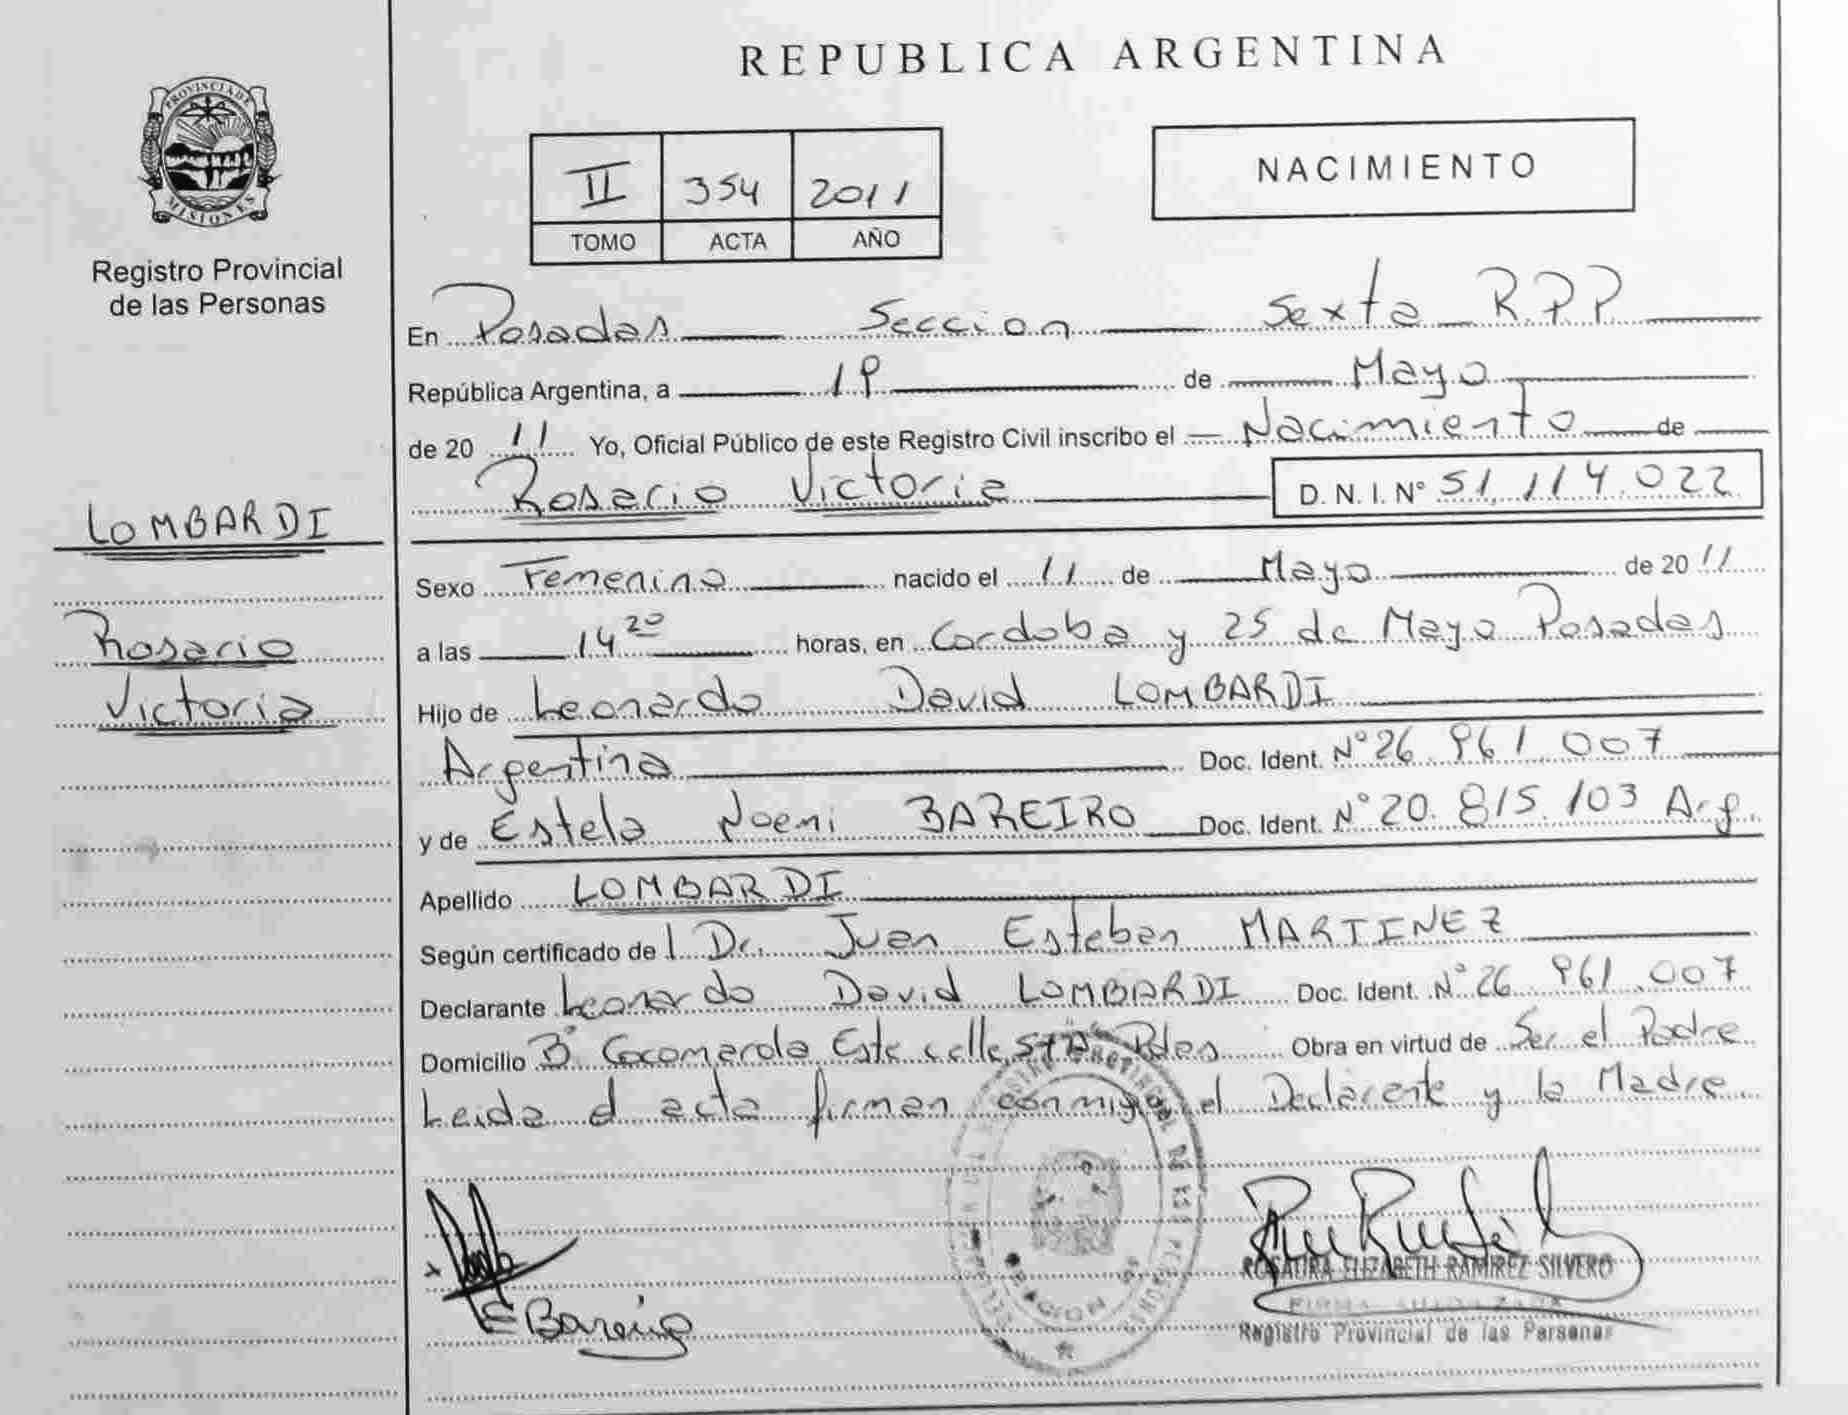 REPUBLICA ARGENTINA
PROVINCIA DE
MISIONES
Registro Provincial
de las Personas
II 354 2011
TOMO ACTA AÑO
NACIMIENTO
En Posadas Seccion Sexta R.P.P.
República Argentina, a 19 de Mayo
de 20 11 Yo, Oficial Público de este Registro Civil inscribo el Nacimiento de
Rosario Victoria D. N. I. N° 51.114.022
LOMBARDI
Rosario
Victoria
Sexo Femenino nacido el 11 de Mayo de 20 11
a las 14 20 horas, en Cordoba y 25 de Mayo Posadas
Hijo de Leonardo David LOMBARDI
Argentina Doc. Ident. N° 26.961.007
y de Estela Noemi BAREIRO Doc. Ident. N° 20.815.103 Arg.
Apellido LOMBARDI
Según certificado de l Dr. Juan Esteban MARTINEZ
Declarante Leonardo David LOMBARDI Doc. Ident. N° 26.961.007
Domicilio B° Cocomarola Este calle Pdas Obra en virtud de Ser el Padre
Leida el acta firman conmigo el Declarante y la Madre
E Bareiro
ROSAURA ELIZABETH RAMIREZ SILVERO
FIRMA AUTORIZADA
Registro Provincial de las Personas